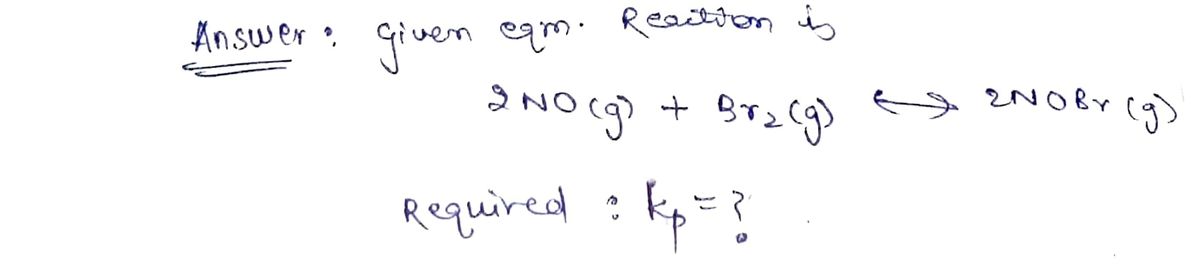 Answer : Given eqm. Reaction is
2NO(g) + Br₂(g) ⟷ 2NOBr(g)
Required : kp = ?